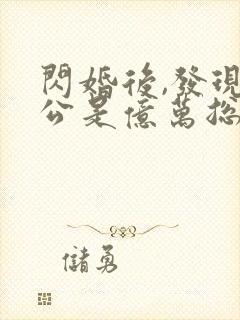 閃婚後,發現
公是億萬總
儲勇